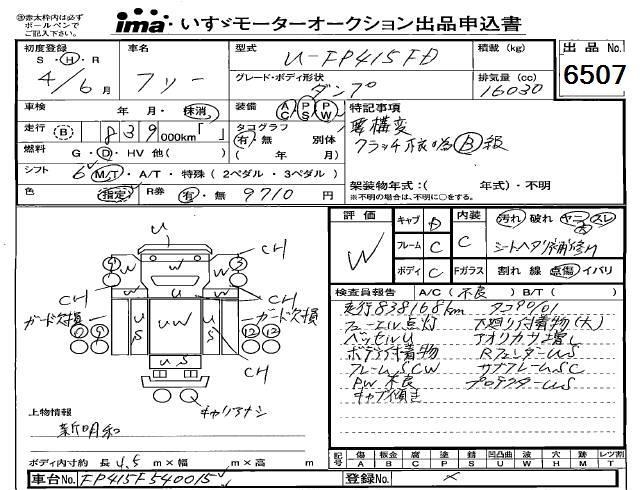 ③赤太枠内は必ずボールペンでご記入下さい。
ima いすゞモーターオークション出品申込書
初度登録 S・H・R 4/6月
車名 フソー
型式 U-FP415FD
グレード・ボディ形状 ダンプ
積載 (kg)
排気量 (cc) 16030
出品No. 6507
車検 年 月・抹消
装備 AC PS PW
特記事項
要構変
クラッチ不良の為B級
走行 (B) 839,000km「 」
タコグラフ 有・無 別体 ( 年 月)
燃料 G・D・HV 他( )
シフト 6 M/T・A/T・特殊(2ペダル・3ペダル)
架装物年式:( 年式)・不明
※不明の場合は、不明に○をする。
色 指定 R券 有・無 9710 円
評価 W
キャブ D
フレーム C
ボディ C
内装 C
Fガラス
汚れ 破れ ヤニ スレ
シートヘタリ
割れ 線 点傷 イバリ
U
CH CH
W W W
U
CH CH
ガード欠損 ガード欠損
US UW US
US
CH
キャリアナシ
検査員報告 A/C(不良) B/T( )
走行838168km タコ90/01
フューエル点灯 下廻り付着物(大)
ベッセルU アオリカサ増し
ボディ付着物 RフェンダーUS
フレームSCW サブフレームSC
PW不良 プロテクターUS
キャブ傾き
上物情報
新明和
ボディ内寸約 長4.5m×幅 m×高 m
記号 傷A 板金B 腐C 塗P 錆S 凹凸曲U 波W 穴H 跡M レツ割T
車台No. FP415F540015
登録No. ×